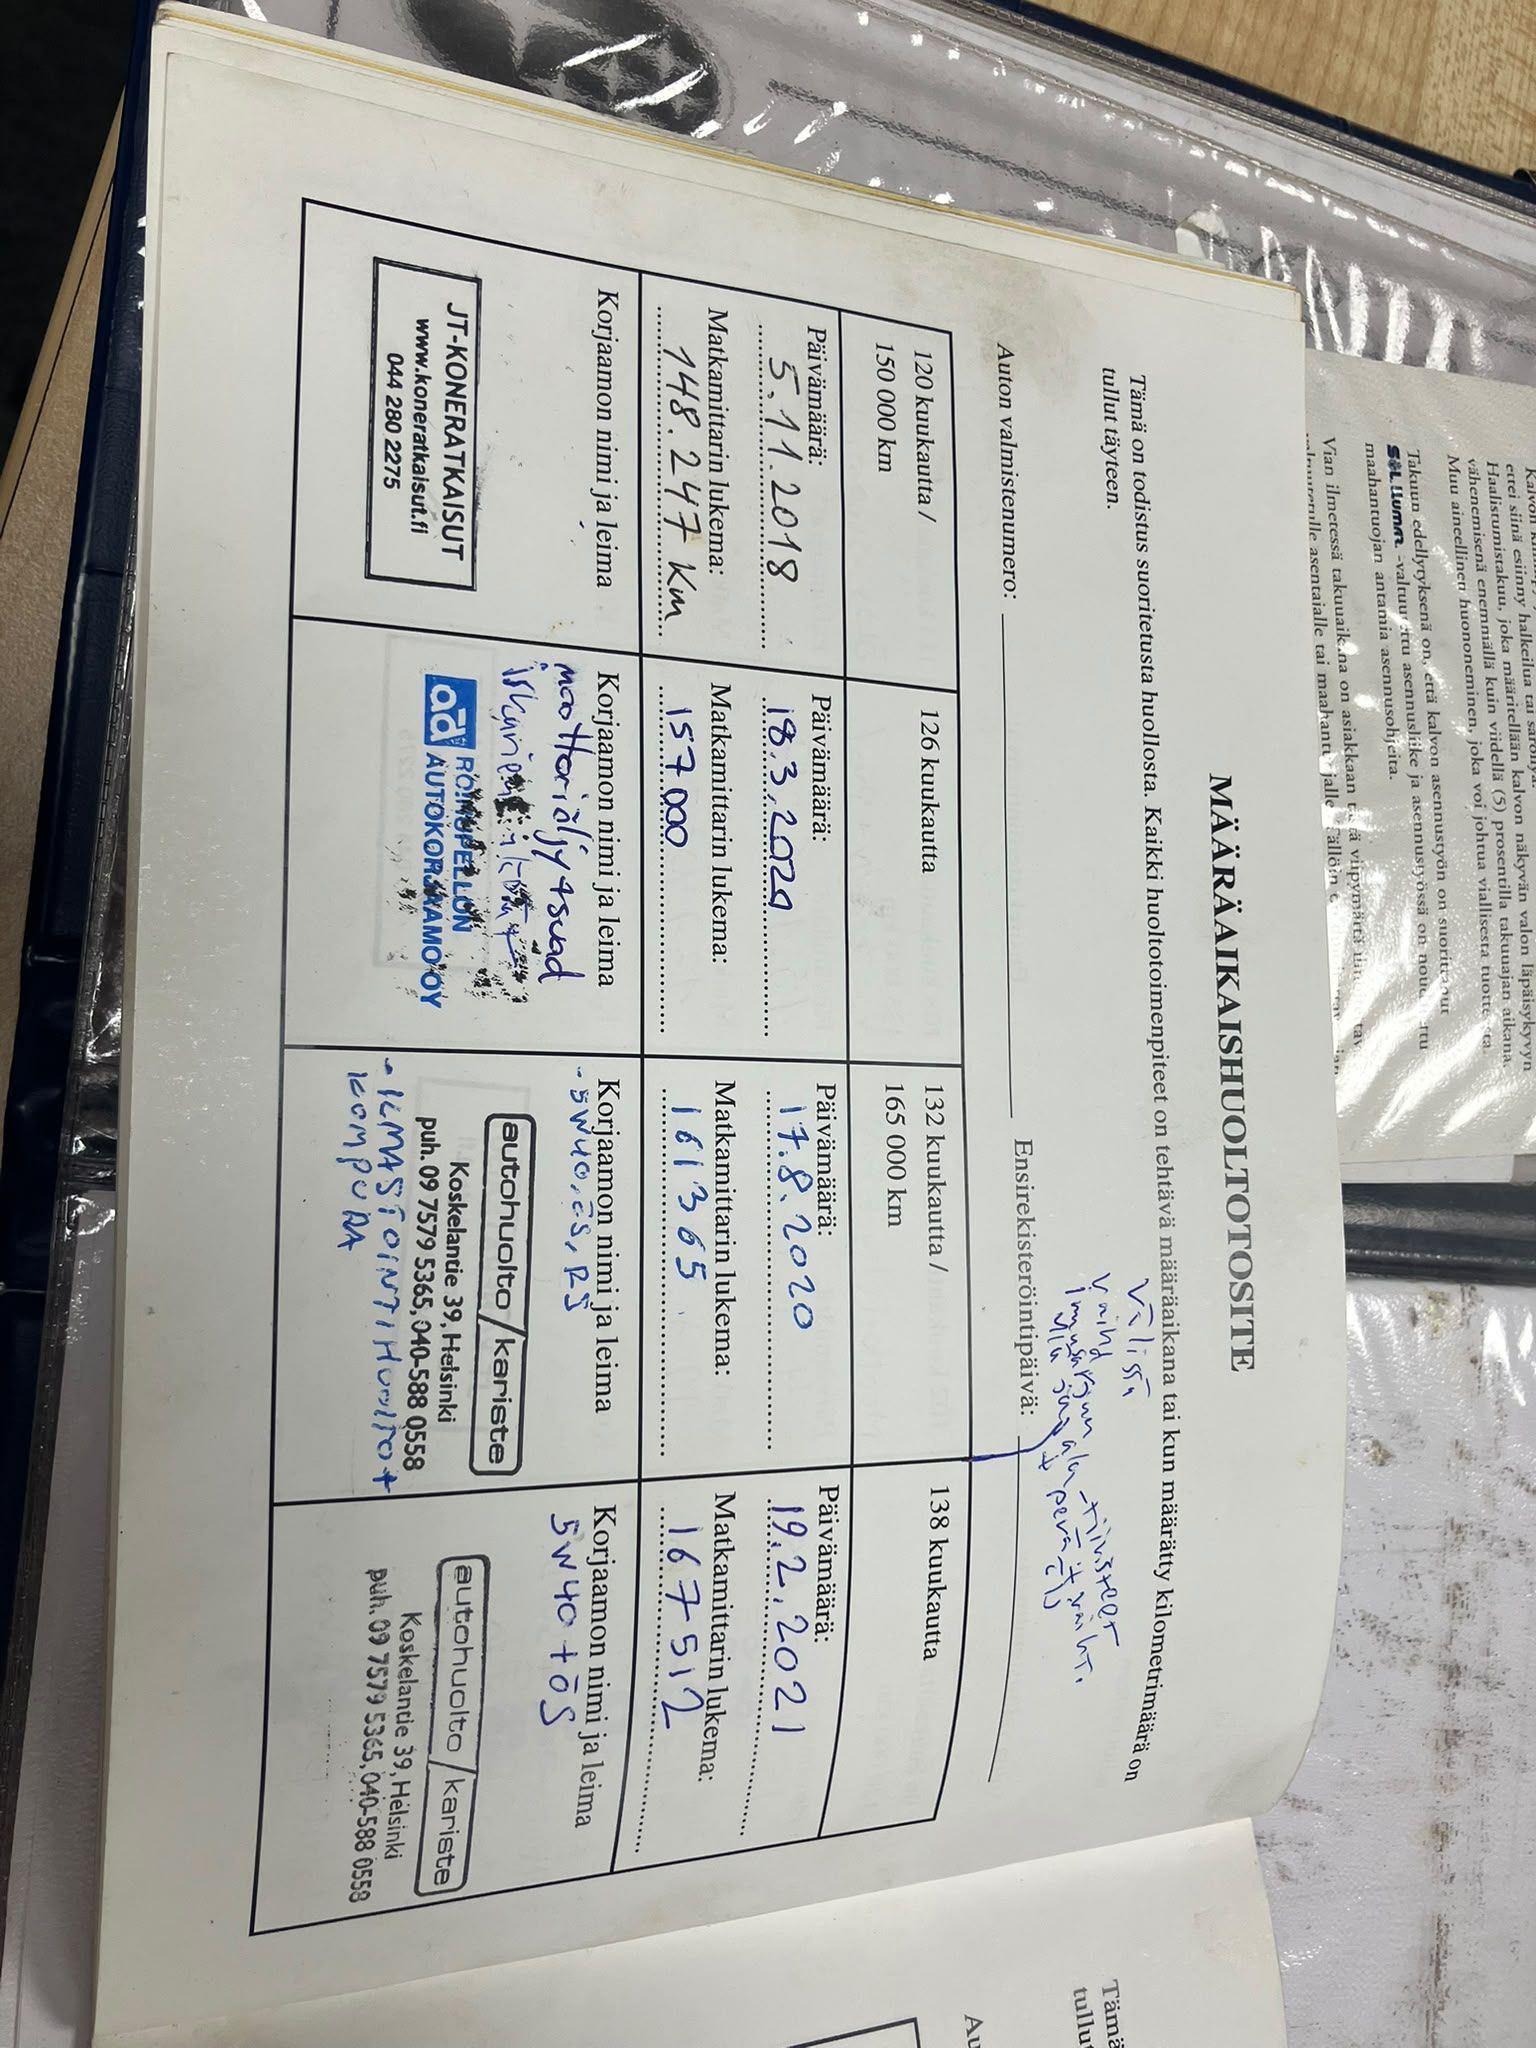 MÄÄRÄAIKAISHUOLTOTOSITE
Tämä on todistus suoritetusta huollosta. Kaikki huoltotoimenpiteet on tehtävä määräaikana tai kun määrätty kilometrimäärä on
tullut täyteen.
Välissä
vaihd
imusarjan ala-tiivisteet
+ perä
Auton valmistenumero:
Ensirekisteröintipäivä:
120 kuukautta /
150 000 km
Päivämäärä:
5.11.2018
Matkamittarin lukema:
148.247 km
Korjaamon nimi ja leima
JT-KONERATKAISUT
www.koneratkaisut.fi
044 280 2275
126 kuukautta
Päivämäärä:
18.3.2020
Matkamittarin lukema:
157.000
Korjaamon nimi ja leima
moottoriöljy+suod
ad
AUTOKORJAAMO OY
132 kuukautta /
165 000 km
Päivämäärä:
17.8.2020
Matkamittarin lukema:
161365
Korjaamon nimi ja leima
-5W40,ÖS,RS
autohuolto/kariste
Koskelantie 39, Helsinki
puh. 09 7579 5365, 040-588 0558
-ILMASTOINTIHUOLTO+
KOMPURA
138 kuukautta
Päivämäärä:
19.2.2021
Matkamittarin lukema:
167512
Korjaamon nimi ja leima
5W40+ÖS
autohuolto/kariste
Koskelantie 39, Helsinki
puh. 09 7579 5365, 040-588 0558
ettei siinä esiinny halkeilua tai
Haalistumistakuu, joka määritellään kalvon näkyvän valon läpäisykyvyn
vähenemisenä enemmällä kuin viidellä (5) prosentilla takuuajan aikana.
Muu aineellinen huononeminen, joka voi johtua viallisesta tuotteesta.
Takuun edellytyksenä on, että kalvon asennustyön on suorittanut
-valtuutettu asennusliike ja asennustyössä on noudatettu
maahantuojan antamia asennusohjeita.
Vian ilmetessä takuuaikana on asiakkaan viipymättä
asentajalle tai
Tämä
tullut
Au